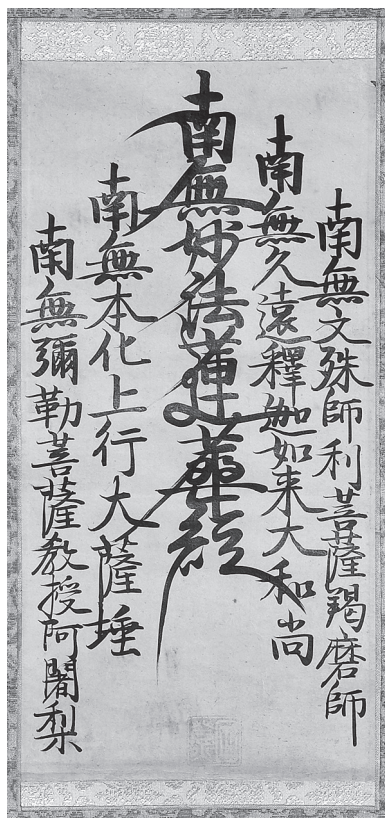 南無文殊師利菩薩羯磨師
南無久遠釋迦如来大和尚
南無妙法蓮華経
南無本化上行大薩埵
南無彌勒菩薩教授阿闍梨